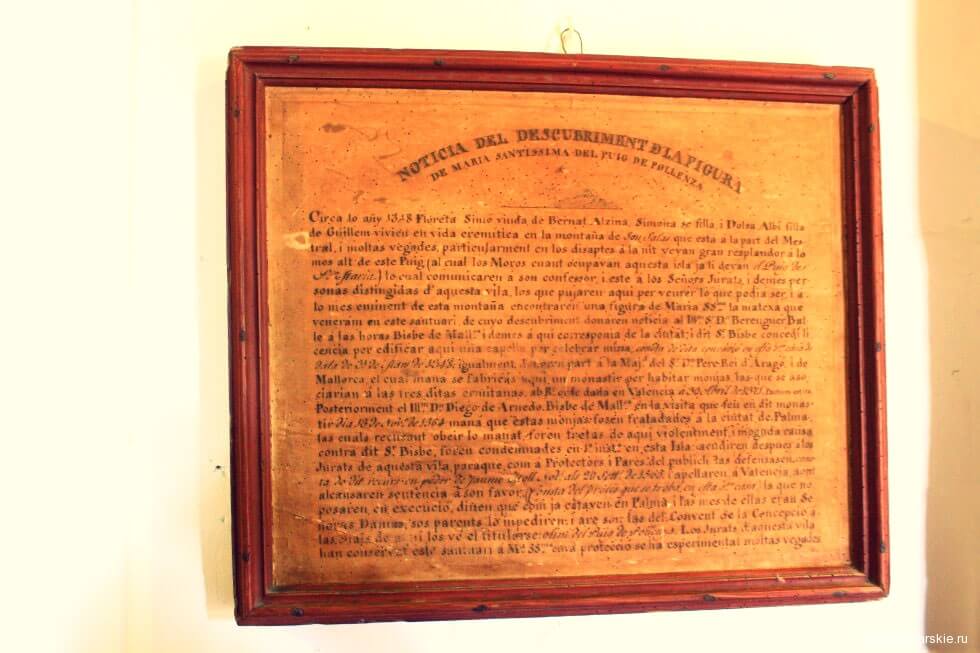 NOTICIA DEL DESCUBRIMENT D LA FIGURA
DE MARIA SANTISSIMA DEL PUIG DE POLLENZA
Circa lo añy 1348 Floreta Simó viuda de Bernat Alzina, Simona se filla, i Dolsa Albi filla
de Guillem vivien en vida eremitica en la montaña de Son Salas que esta à la part del Mes-
tral, i moltas vegades, particularment en los disaptes à la nit veyan gran resplandor à lo
mes alt de este Puig (al cual los Moros cuant ocupavan aquesta isla ja li deyan el Puig de
Sta. Maria) lo cual comunicaren à son confessor, i este à los Señors Jurats, i demes per-
sonas distingidas d'aquesta vila, los que pujaren aqui per veurer lo que podia ser, i a
lo mes eminent de esta montaña encontraren una figura de Maria SSma. la matexa que
veneram en este santuari, de cuyo descubriment donaren noticia al Illm. S. D. Berenguer Bal-
le a las horas Bisbe de Mallca. i demes à qui corresponia de la ciutat; i dit Sr. Bisbe concedí lli-
cencia per edificar aqui una capella per celebrar missa,
data de de 1348. igualment part a la Maj. del Sr. Dn. Pere Rei d'Aragó, i de
Mallorca, el cual maná se fabricás aqui un monastir per habitar monjas, las que se aso-
ciarian à las tres ditas ermitanas, ab dada en Valencia a
Posteriorment el Illm. Dn. Diego de Arnedo, Bisbe de Mallca. en la visita que feu en dit monas-
tir dia 18 de Novre. de 1564 mana que estas monjas fosen traladades a la ciutat de Palma,
las cuals recusant obeir lo manat, foren tretas de aqui violentment, i moguda causa
contra dit Sr. Bisbe, foren condemnades en Pa. insta. en esta Isla: acudiren despues a los
Jurats de aquesta vila, paraque com à Protectors i Pares del publich las defensasen,
de dit recurs en poder de Jaume Not. als 20 Sett. de i apellaren à Valencia, aont
alcansaren sentencia à son favor, la que no
posaren en execució, diuen que com ja estaven en Palma, i las mes de ellas eran Se-
ñoras Damas, sos parents lo impediren; i are son las del Convent de la Concepció à
las los ve el titularse olim del Puig de Pollensa. Los Jurats d'aquesta vila
han conservat este santuari a Ma. SSma. cuya protecció se ha experimentat moltas vegades
arskie.ru